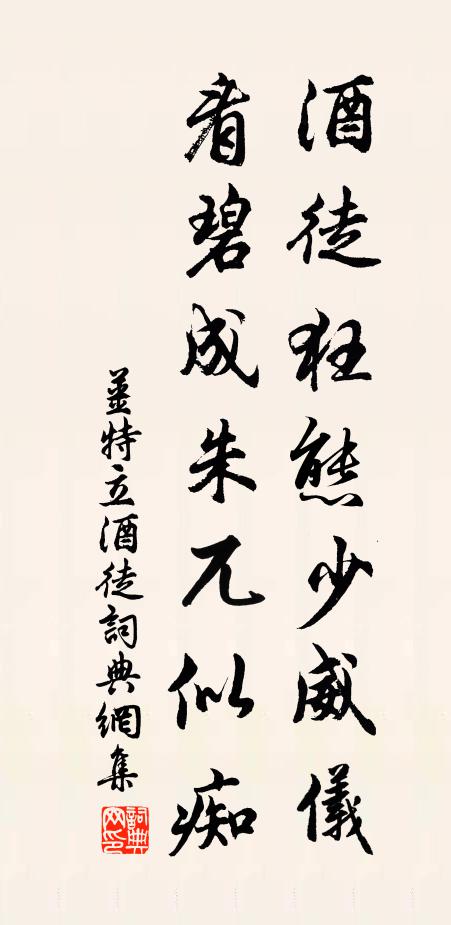 酒徒狂態少威儀
看碧成朱兀似痴
姜特立酒徒詞典網集
詞典網印